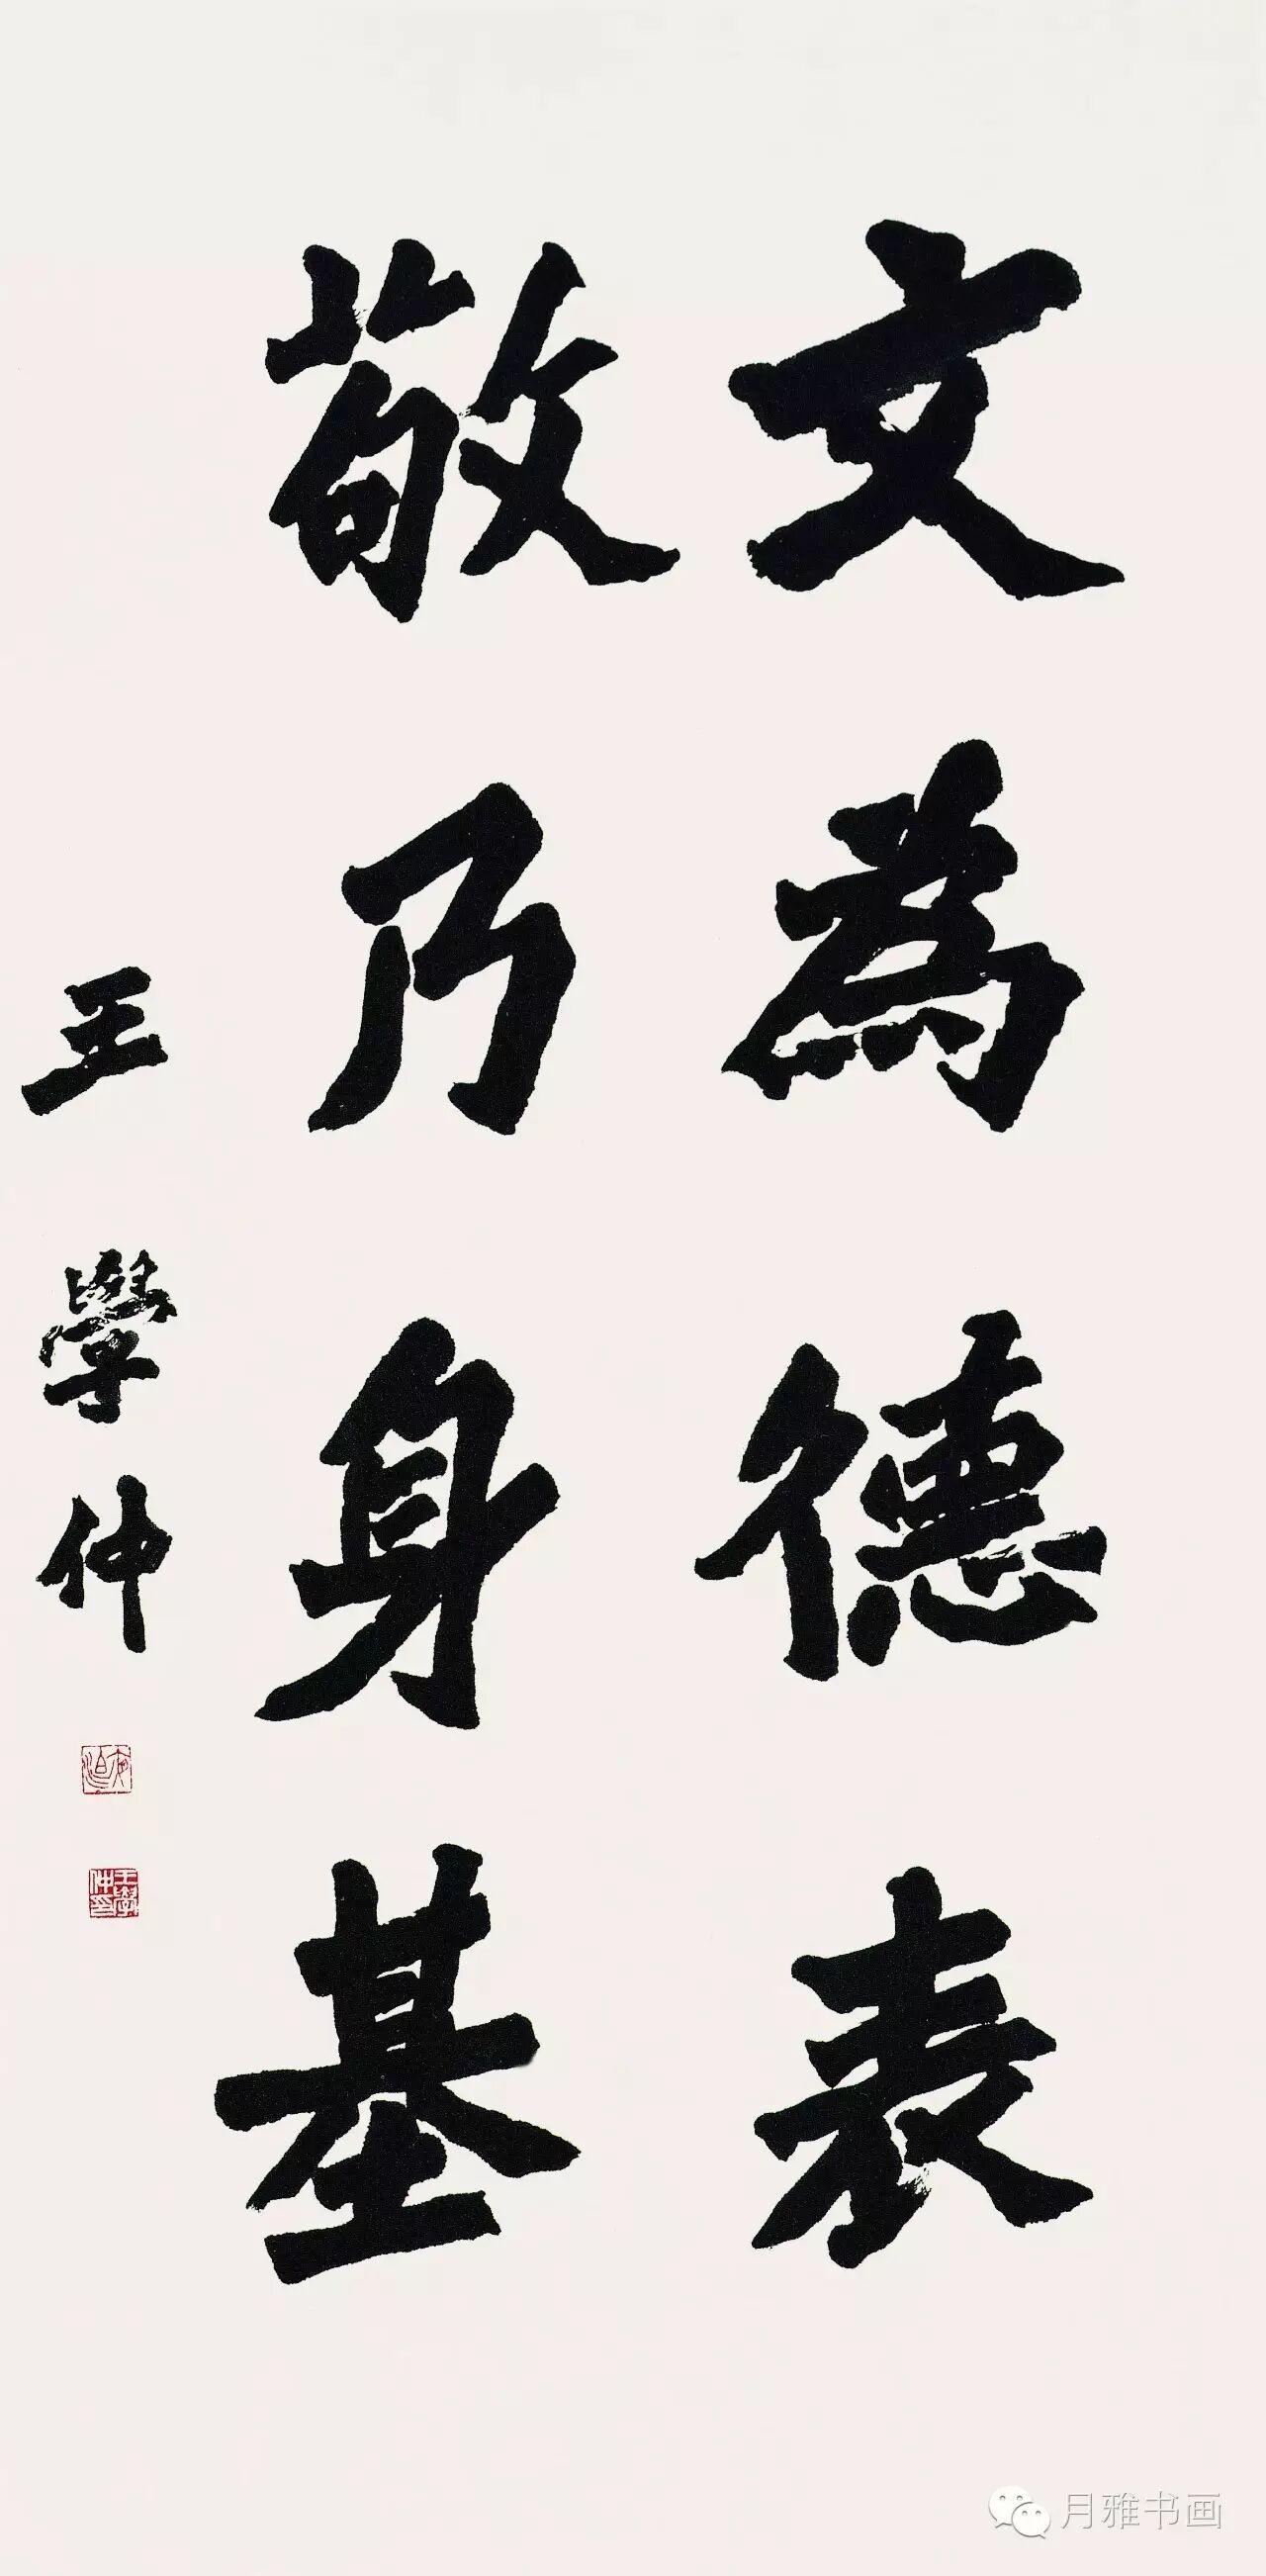 文為德表
敬乃身基
王學仲
王學仲印
月雅书画